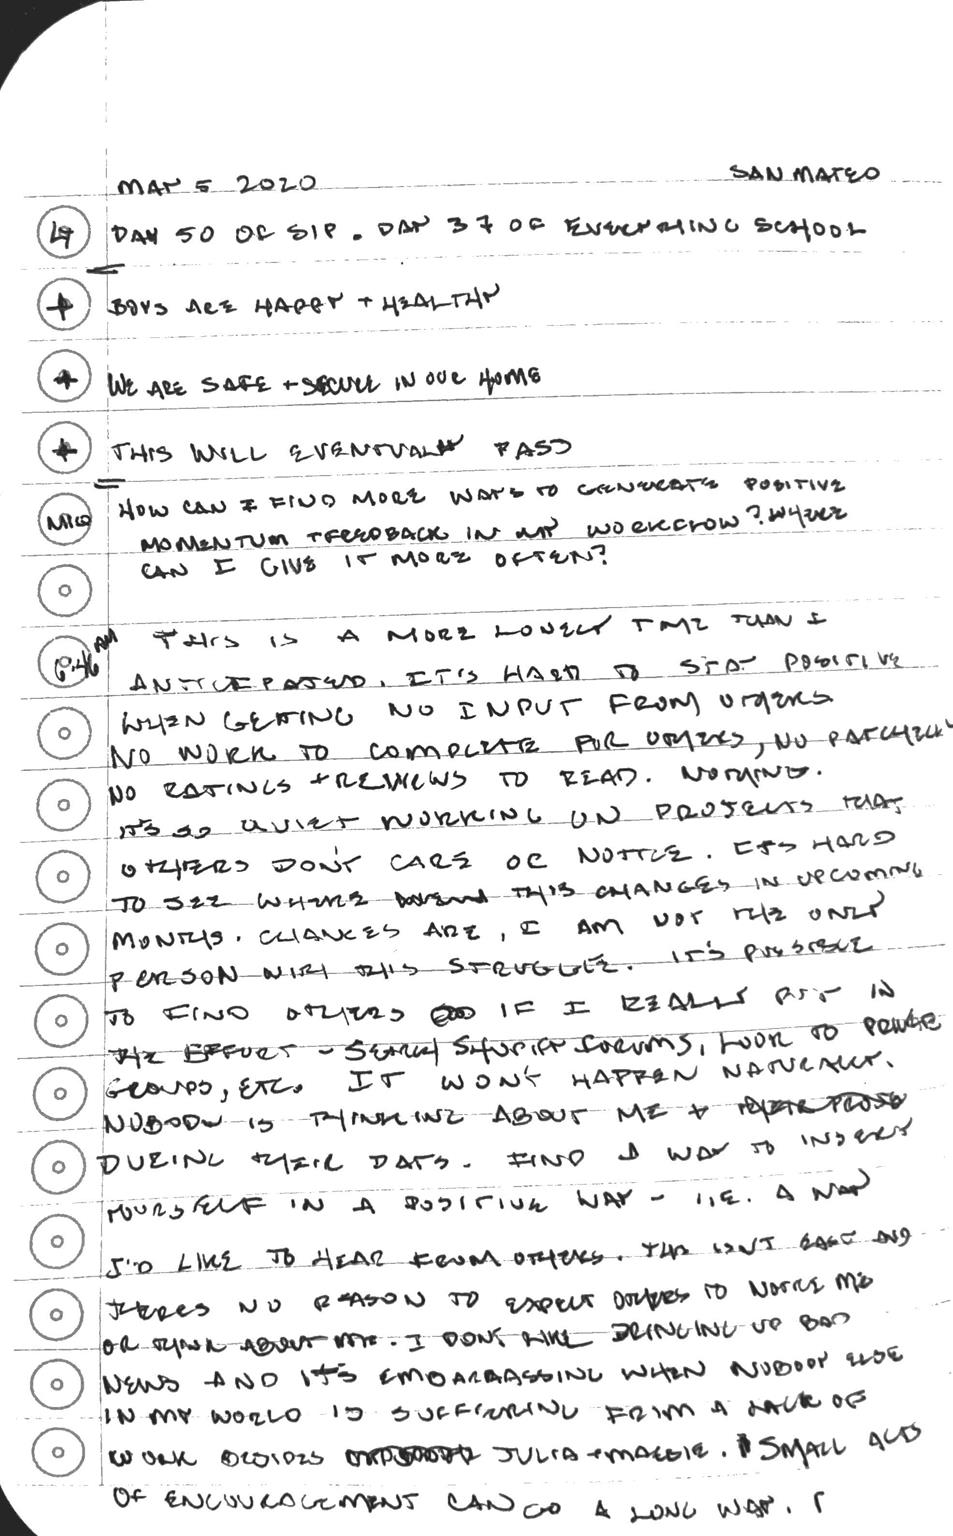 MAY 5 2020 SAN MATEO
DAY 50 OF SIP. DAY 37 OF EVERYTHING SCHOOL
+ BOYS ARE HAPPY + HEALTHY
+ WE ARE SAFE + SECURE IN OUR HOME
+ THIS WILL EVENTUALLY PASS
HOW CAN I FIND MORE WAYS TO GENERATE POSITIVE
MOMENTUM + FEEDBACK IN MY WORKFLOW? WHERE
CAN I GIVE IT MORE OFTEN?
6:46 AM THIS IS A MORE LONELY TIME THAN I
ANTICIPATED. IT'S HARD TO STAY POSITIVE
WHEN GETTING NO INPUT FROM OTHERS
NO WORK TO COMPLETE FOR OTHERS, NO PAYCHECK
NO RATINGS + REVIEWS TO READ. NOTHING.
IT'S SO QUIET WORKING ON PROJECTS THAT
OTHERS DON'T CARE OR NOTICE. IT'S HARD
TO SEE WHERE THIS CHANGES IN UPCOMING
MONTHS. CHANCES ARE, I AM NOT THE ONLY
PERSON WITH THIS STRUGGLE. IT'S POSSIBLE
TO FIND OTHERS IF I REALLY PUT IN
THE EFFORT - SEARCH SHOPIFY FORUMS, LOOK TO PRIVATE
GROUPS, ETC. IT WON'T HAPPEN NATURALLY.
NOBODY IS THINKING ABOUT ME
DURING THEIR DAYS. FIND A WAY TO INSERT
YOURSELF IN A POSITIVE WAY - I.E. A WAY
I'D LIKE TO HEAR FROM OTHERS. THIS ISN'T EASY AND
THERES NO REASON TO EXPECT OTHERS TO NOTICE ME
OR THINK ABOUT ME. I DON'T LIKE BRINGING UP BAD
NEWS AND IT'S EMBARRASSING WHEN NOBODY ELSE
IN MY WORLD IS SUFFERING FROM A LACK OF
WORK BESIDES JULIA + MAGGIE. SMALL ACTS
OF ENCOURAGEMENT CAN GO A LONG WAY. I